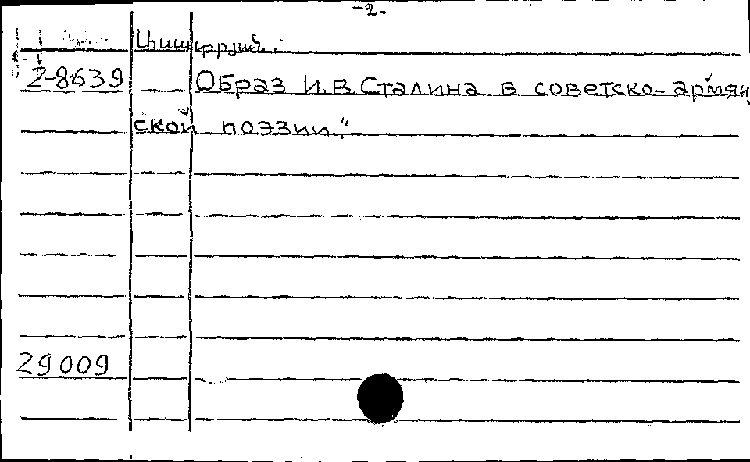 -2-
2-8639 Образ И.В. Сталина в советско-армян
ской поэзии."
29009